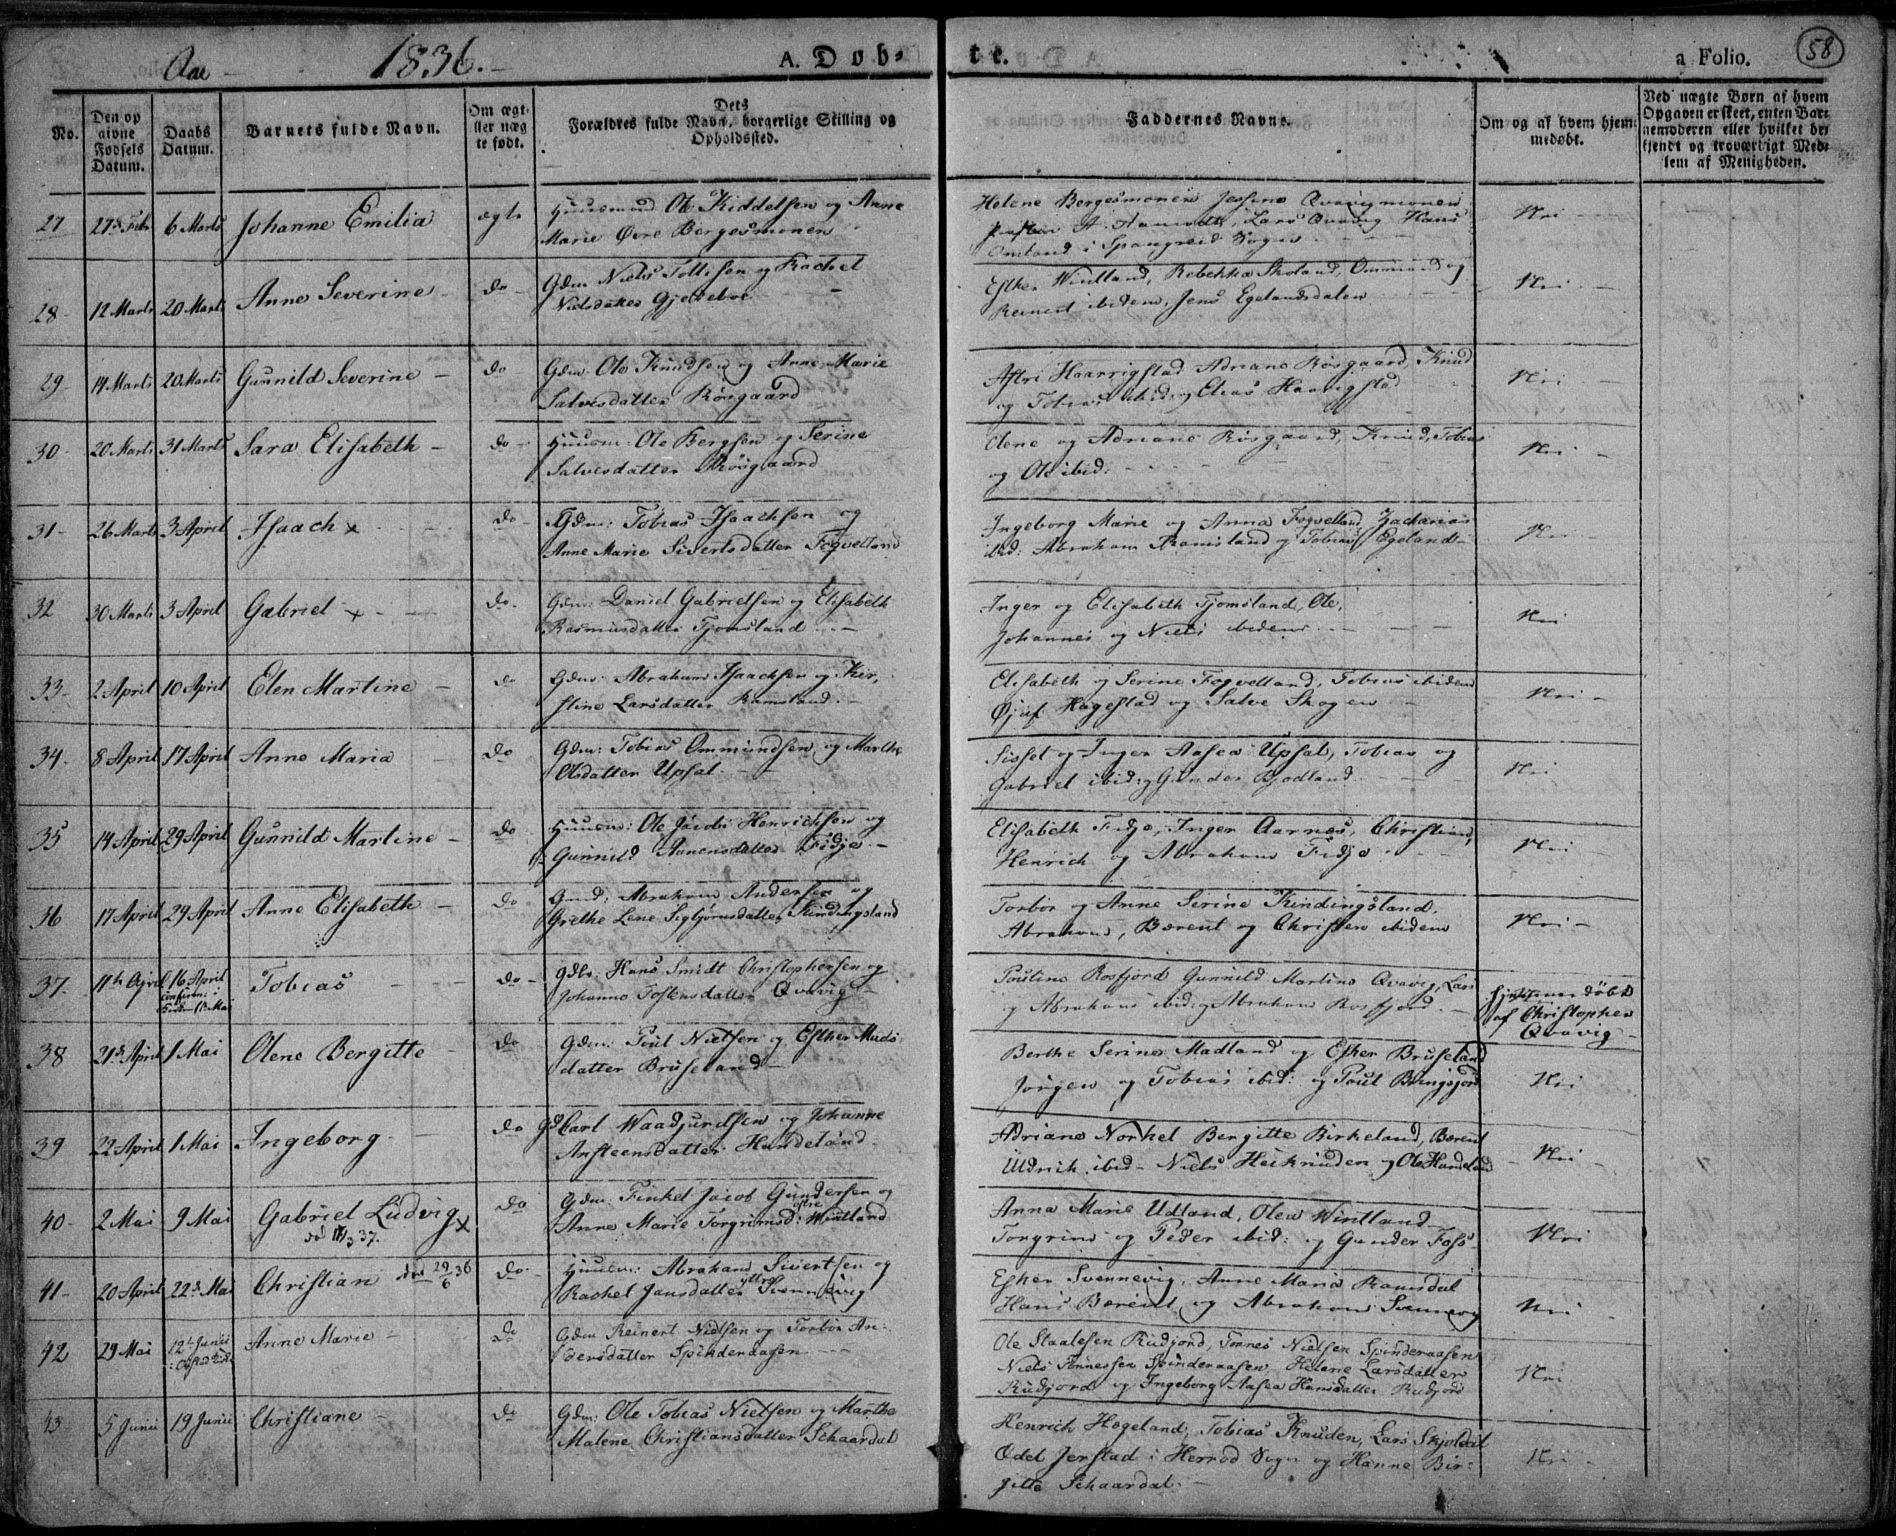 Aae
1836.
A. Døb-
te.
a Folio.
58
No.
Den op
givne
Fødsels
Datum.
Daabs
Datum.
Barnets fulde Navn.
Om ægt-
eller uæg
te født.
Dets
Forældres fulde Navn, borgerlige Stilling og
Opholdssted.
Faddernes Navne.
Om og af hvem hjem-
medøbt.
Ved uægte Børn af hvem
Opgaven er skeet, enten Bar-
nemoderen eller hvilket be-
kjendt og troværdigt Med-
lem af Menigheden.
27 27de Febr 6 Marts Johanne Emilia ægte
Huusmand Ole Kiddelsen og Anne
Marie Øvre Bergesmonen
Helene Bergesmonen Qvavigmonen
Lars Qvavig Hans
Omland i Spangereid Sogn
Nei
28 12 Marts 20 Marts Anne Severine do
Gdm Niels Tollifsen og Rachel
Nielsdatter
Esther Wintland, Rebekka Skoland, Ommund og
Reinert ibidem, Jens Egelandsdalen
Nei
29 14 Marts 20 Marts Gunnild Severine do
Gdm. Ole Knudsen og Anne Marie
Salvesdatter Rørgaard
Astri Haarrigstad Adriane Rørgaard, Knud
og Tobias ibid: og Elias Haarigstad
Nei
30 20 Marts 31 Marts Sara Elisabeth do
Huusm: Ole Bergsen og Serine
Salvesdatter Rørgaard
Olene og Adriane Rørgaard, Knud, Tobias
og Ole ibid:
Nei
31 26 Marts 3 April Isaach x do
Gdm: Tobias Isaachsen og
Anne Marie Sivertsdatter Fogvelland
Ingeborg Marie og Anna Fogvelland, Zacharias
ibid: Abraham Ramsland og Tobias Egeland
Nei
32 30 Marts 3 April Gabriel x do
Gdm: Daniel Gabrielsen og Elisabeth
Rasmusdatter Tjomsland
Inger og Elisabeth Tjomsland, Ole,
Johannes og Niels ibidem
Nei
33 2 April 10 April Elen Martine do
Gdm: Abraham Isaachsen og Kir-
stine Larsdatter Ramsland.
Elisabeth og Serine Fogvelland, Tobias ibidem
Øjuf Hagestad og Salve Skogen
Nei
34 8 April 17 April Anne Maria do
Gdm: Tobias Ommundsen, og Marthe
Olsdatter Upsal.
Sissel og Inger Aasea Upsal, Tobias og
Gabriel ibid: og Gunder Bjodland
Nei
35 14 April 29 April Gunnild Martine do
Huusm: Ole Jacob Henrichsen og
Gunnild Aanensdatter Fidje
Elisabeth Fidje, Inger Aarnes, Christian,
Henrich og Abraham Fidje
Nei
36 17 April 24 April Anne Elisabeth do
Gmd: Abraham Andersen og
Grethe Lene Sigbjørnsdatter Kindingsland
Torbor og Anne Serine Kindingsland,
Abraham, Bærent og Christen ibidem
Nei
37 11te April 16 April Tobias do
Gdbr. Hans Smidt Christophersen og
Johanne Tostensdatter Qvavig
Pouline Rosfjord Gunnild Martine Qvavig, Lars
og Abraham ibid: og Abraham Rosfjord.
hjemmedøbt
af Christopher
Qvavig
38 21de April 1 Mai Olene Bergitte do
Gdm: Poul Nielsen og Esther Mads-
datter Bruseland
Berthe Serine Madland og Esther Bruseland
Jørgen og Tobias ibid: og Poul Bringsjord
Nei
39 22 April 1 Mai Ingeborg do
Carl Waadjuretsen og Johanne
Ansteensdatter Handeland
Adriane Norkel Bergitte Birkeland, Bærent
Uldrik ibid - Niels Heiknuden og Ole Handeland
Nei
40 2 Mai 9 Mai Gabriel Ludvig x do
Gdm. Finkel Jacob Gundersen og
Anne Marie Torgrimsd: Wintland
Anna Marie Udland, Olea Wintland
Torgrim og Peder ibid: og Gunder Foss
Nei
41 20 April 22de Mai Christian død 29/6 36 do
Huusm: Abraham Sivertsen og
Rachel Jansdatter yttre Svennevig
Esther Svennevig, Anne Maria Ramsdal
Hans Bærent og Abraham Svennevig
Nei
42 29 Mai 12te Junii Anne Marie do
Gdm Reinert Nielsen og Torbor An-
dersdatter Spinderaasen
Ole Staalesen Rudjord, Tønnes Nielsen Spinderaasen
Niels Tønnessen Spinderaasen, Helene Larsdatter
Rudjord og Ingeborg Aasea Hansdatter Rudjord
Nei
43 5 Junii 19 Junii Christiane do
Gdm: Ole Tobias Nielsen og Marthe
Malene Christiansdatter Schaardal
Henrich Hogeland, Tobias Knuden, Lars Skjoldal
Odel Jerstad i Herred Sogn og Hanne Bir-
gitte Schaardal.
Nei